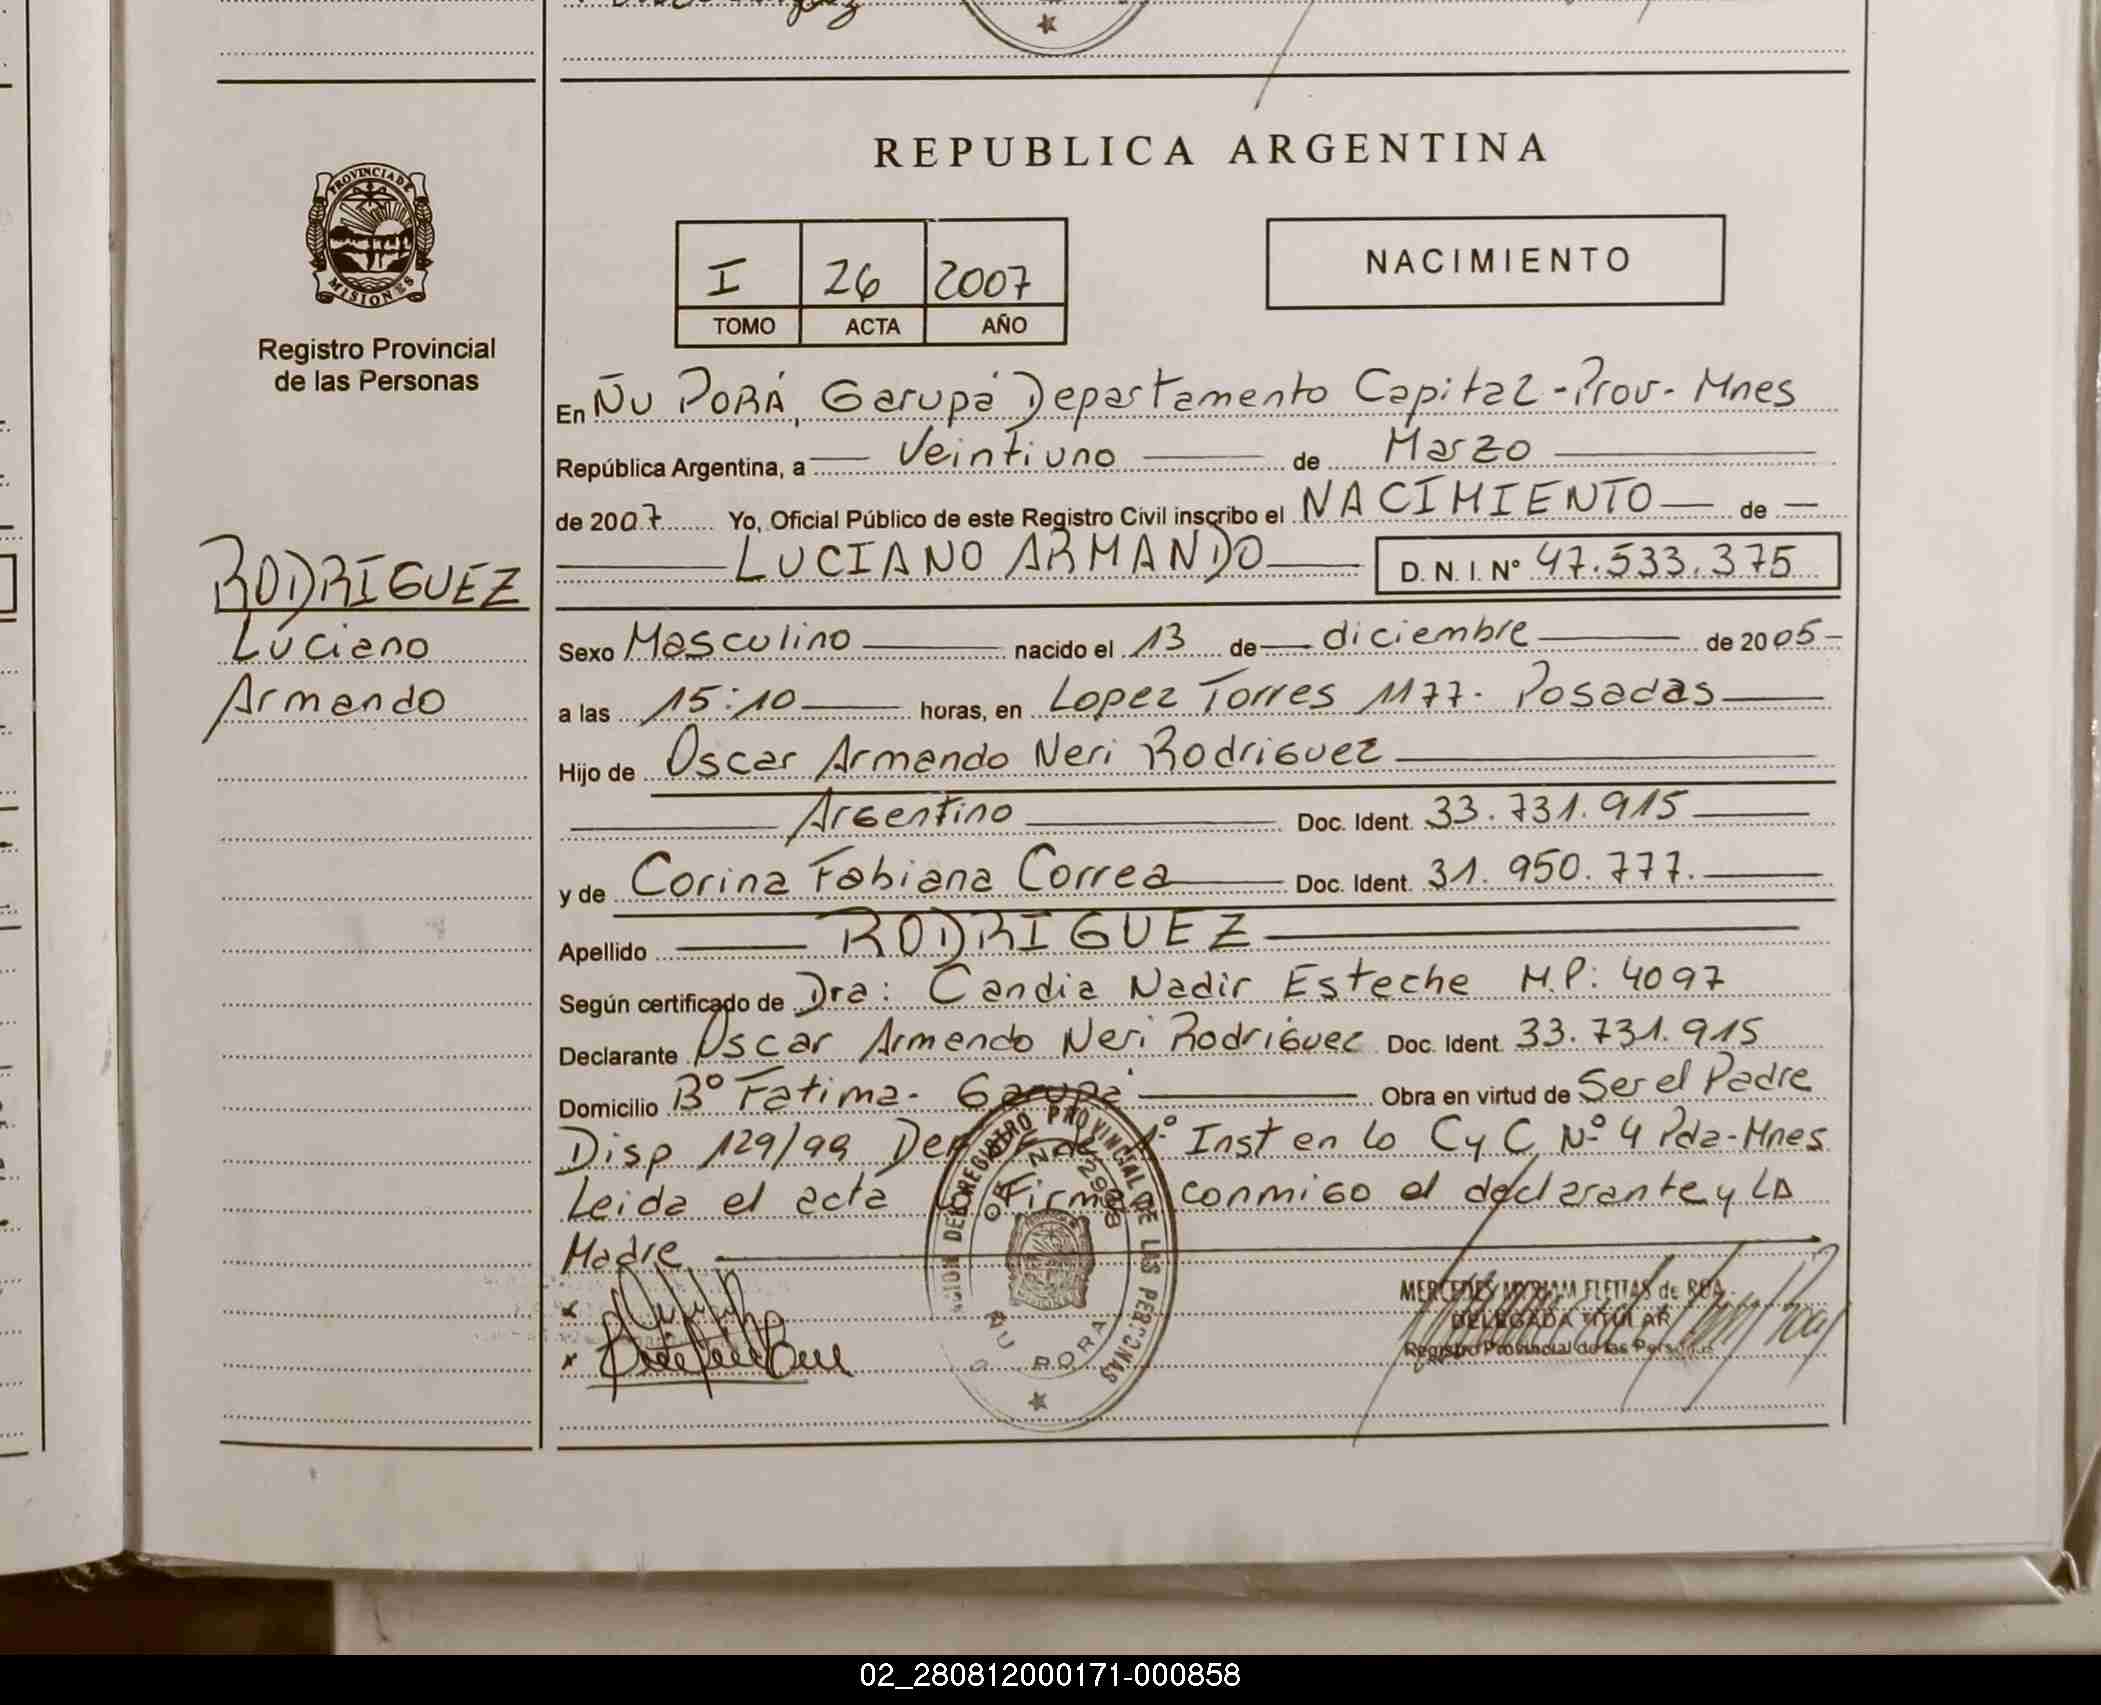 REPUBLICA ARGENTINA
PROVINCIA DE
MISIONES
Registro Provincial
de las Personas
I 26 2007
TOMO ACTA AÑO
NACIMIENTO
En Ñu Porá, Garupá Departamento Capital - Prov - Mnes
República Argentina, a Veintiuno de Marzo
de 2007 Yo, Oficial Público de este Registro Civil inscribo el NACIMIENTO de
LUCIANO ARMANDO D.N.I. Nº 47.533.375
RODRIGUEZ
Luciano
Armando
Sexo Masculino nacido el 13 de diciembre de 2005
a las 15:10 horas, en Lopez Torres 1177. Posadas
Hijo de Oscar Armando Neri Rodriguez
Argentino Doc. Ident. 33.731.915
y de Corina Fabiana Correa Doc. Ident. 31.950.777.
Apellido RODRIGUEZ
Según certificado de Dra: Candia Nadir Esteche M.P: 4097
Declarante Oscar Armando Neri Rodriguez Doc. Ident. 33.731.915
Domicilio Bº Fatima - Garupá Obra en virtud de Ser el Padre
Disp 129/99 de 1º Inst en lo C y C Nº 4 Pda-Mnes
Leida el acta Firman conmigo el declarante y La
Madre
DEL REGISTRO PROVINCIAL DE LAS PERSONAS
ÑU PORA
MERCEDES MYRIAM FLEITAS de ROA
DELEGADA TITULAR
Registro Provincial de las Personas
02_280812000171-000858